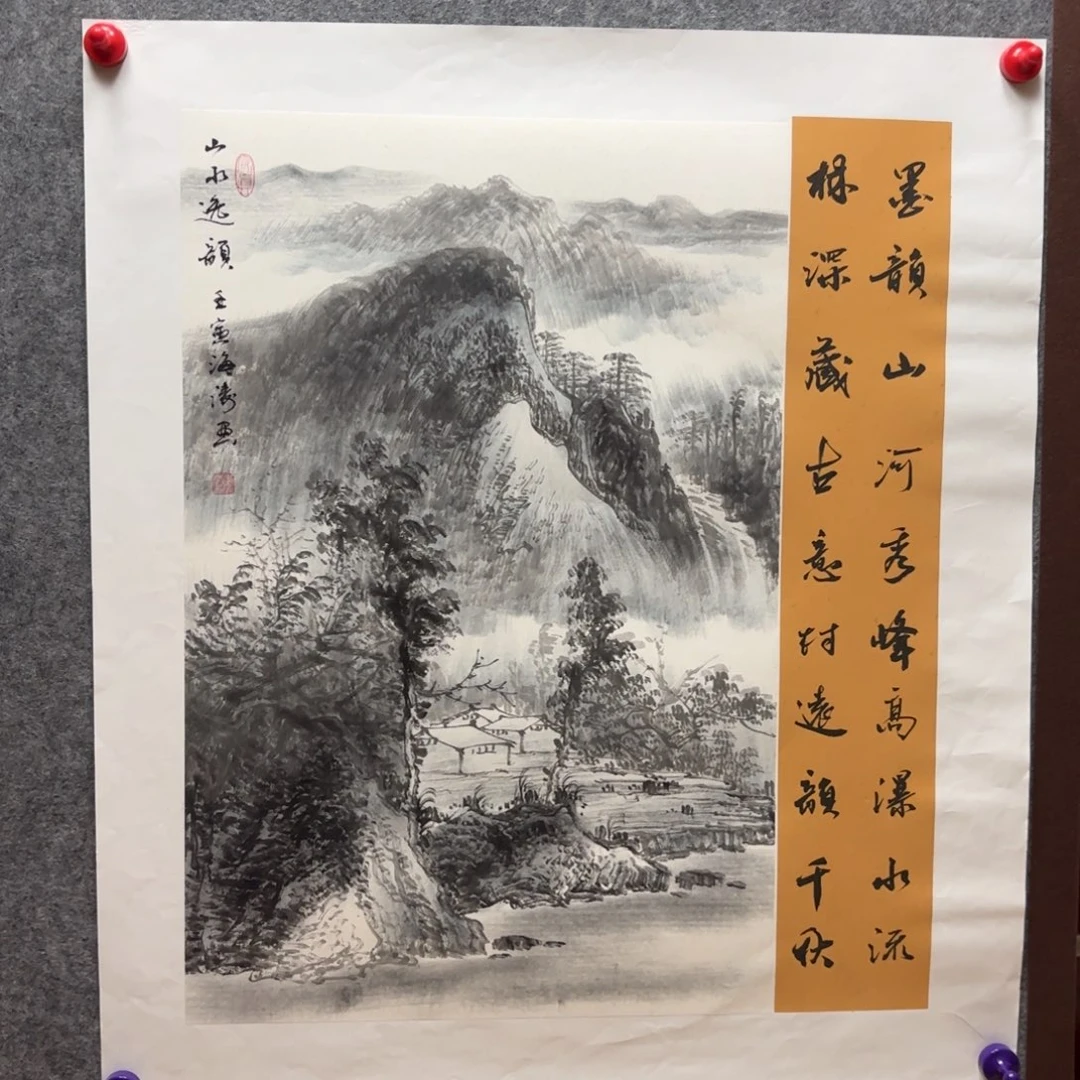 墨韻山河秀峰高瀑水流
林深藏古意村遠韻千秋
山水逸韻
壬寅海濤畫